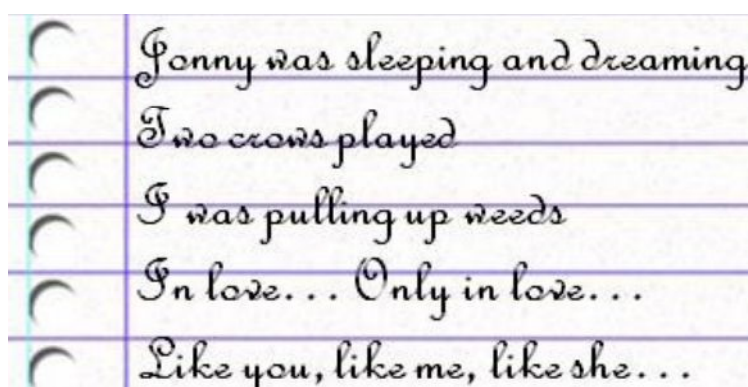 Jonny was sleeping and dreaming
Two crows played
I was pulling up weeds
In love... Only in love...
Like you, like me, like she...